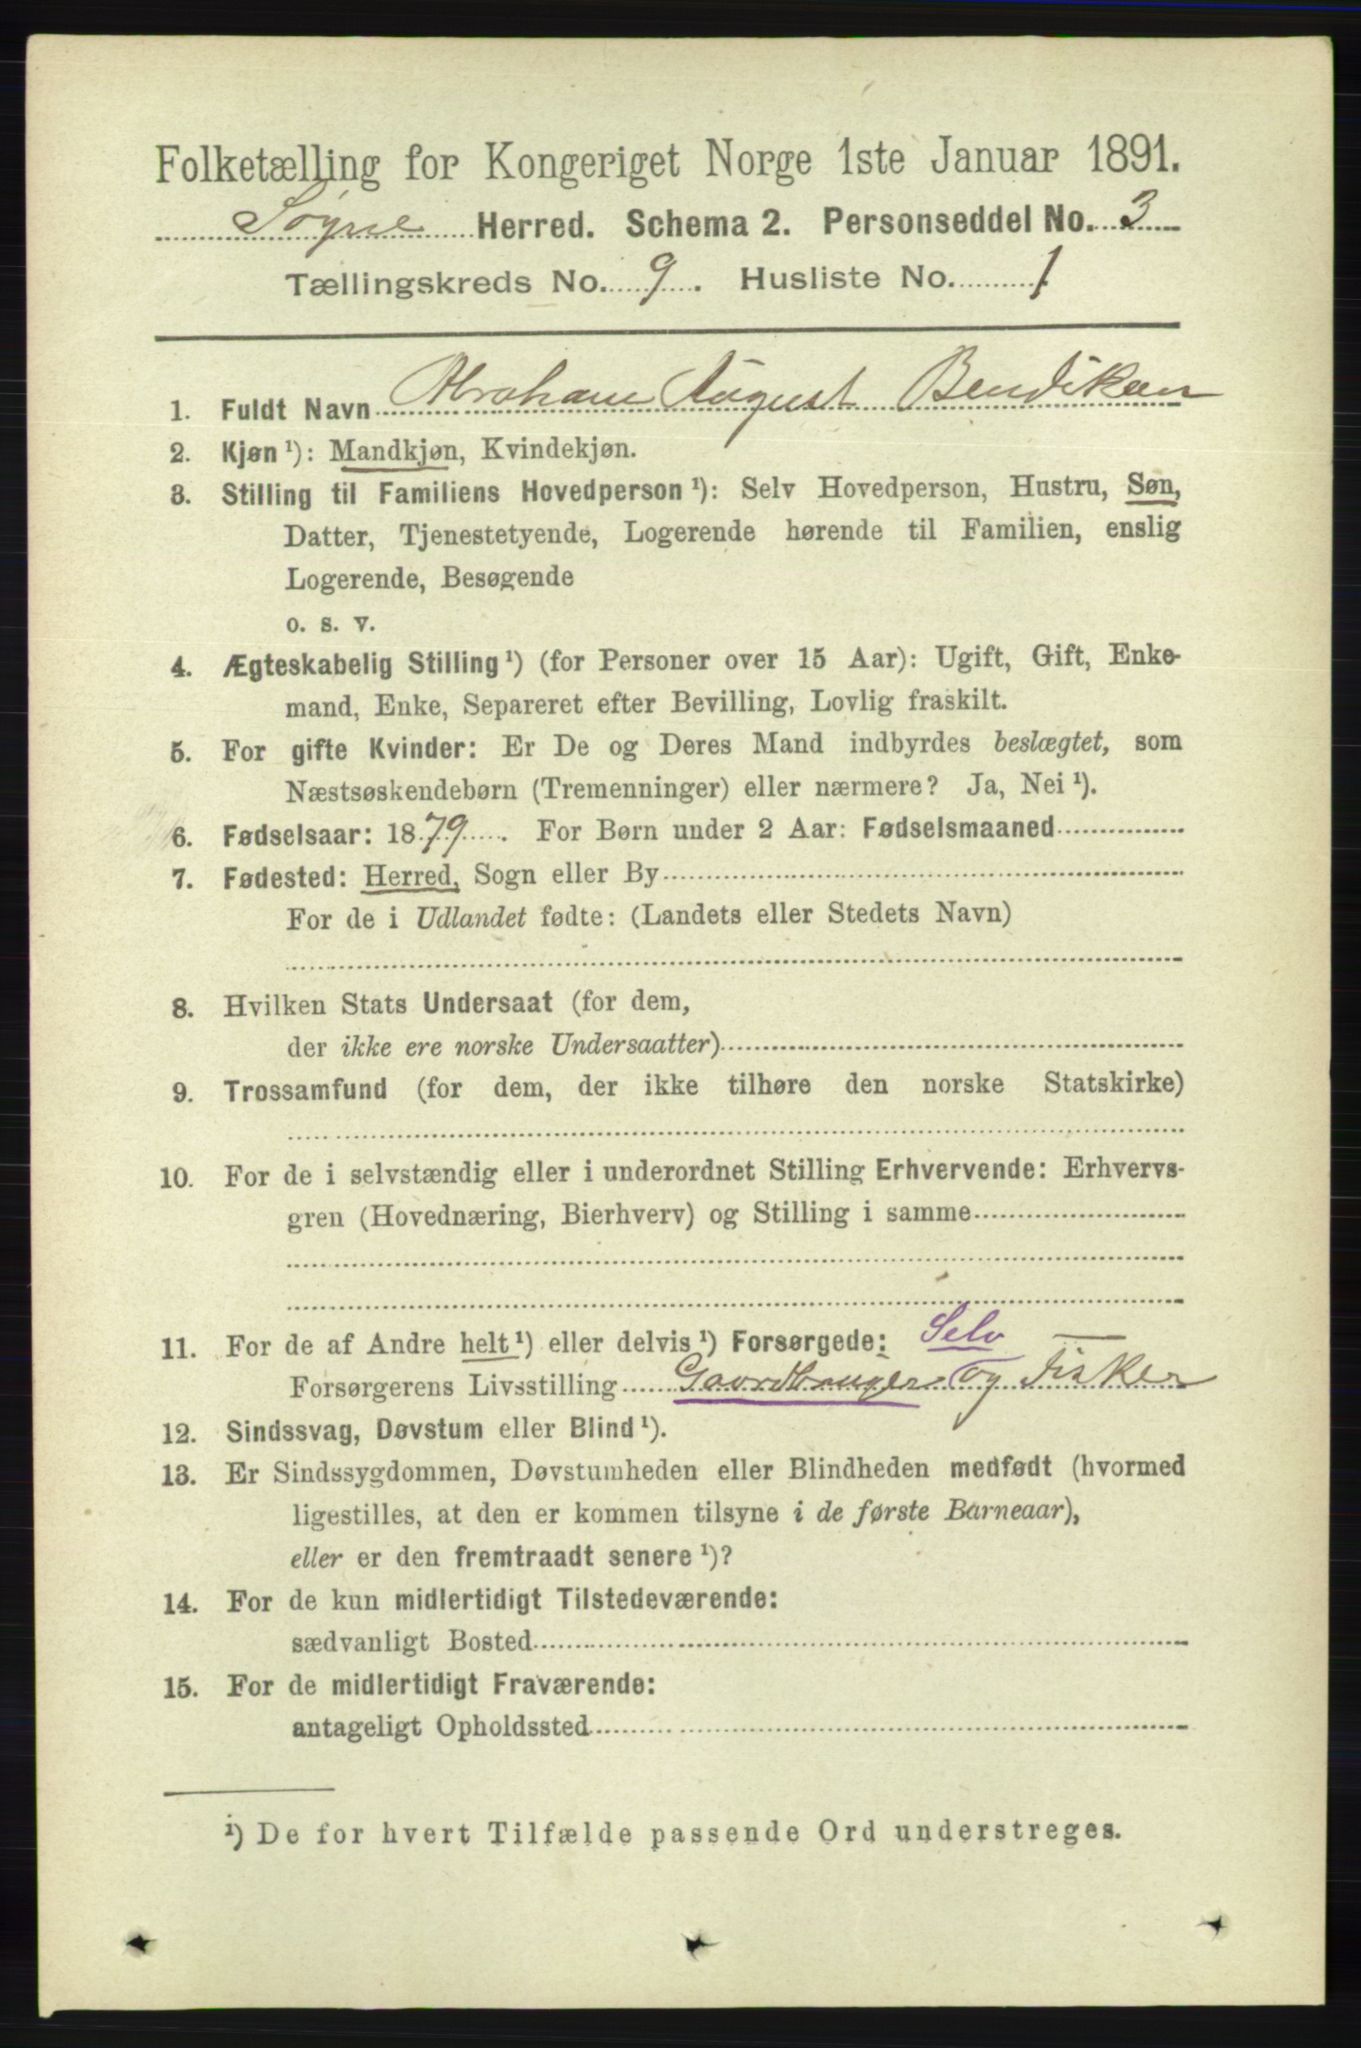 Folketælling for Kongeriget Norge 1ste Januar 1891.
Søgne Herred. Schema 2. Personseddel No. 3
Tællingskreds No. 9. Husliste No. 1
1. Fuldt Navn Abraham August Bendiksen
2. Kjøn ¹): Mandkjøn, Kvindekjøn.
3. Stilling til Familiens Hovedperson ¹): Selv Hovedperson, Hustru, Søn,
Datter, Tjenestetyende, Logerende hørende til Familien, enslig
Logerende, Besøgende
o. s. v.
4. Ægteskabelig Stilling ¹) (for Personer over 15 Aar): Ugift, Gift, Enke-
mand, Enke, Separeret efter Bevilling, Lovlig fraskilt.
5. For gifte Kvinder: Er De og Deres Mand indbyrdes beslægtet, som
Næstsøskendebørn (Tremenninger) eller nærmere? Ja, Nei ¹).
6. Fødselsaar: 1879. For Børn under 2 Aar: Fødselsmaaned
7. Fødested: Herred, Sogn eller By
For de i Udlandet fødte: (Landets eller Stedets Navn)
8. Hvilken Stats Undersaat (for dem,
der ikke ere norske Undersaatter)
9. Trossamfund (for dem, der ikke tilhøre den norske Statskirke)
10. For de i selvstændig eller i underordnet Stilling Erhvervende: Erhvervs-
gren (Hovednæring, Bierhverv) og Stilling i samme
11. For de af Andre helt ¹) eller delvis ¹) Forsørgede: Selv
Forsørgerens Livsstilling Gaardbruger og Fisker
12. Sindssvag, Døvstum eller Blind ¹).
13. Er Sindssygdommen, Døvstumheden eller Blindheden medfødt (hvormed
ligestilles, at den er kommen tilsyne i de første Barneaar),
eller er den fremtraadt senere ¹)?
14. For de kun midlertidigt Tilstedeværende:
sædvanligt Bosted
15. For de midlertidigt Fraværende:
antageligt Opholdssted
¹) De for hvert Tilfælde passende Ord understreges.